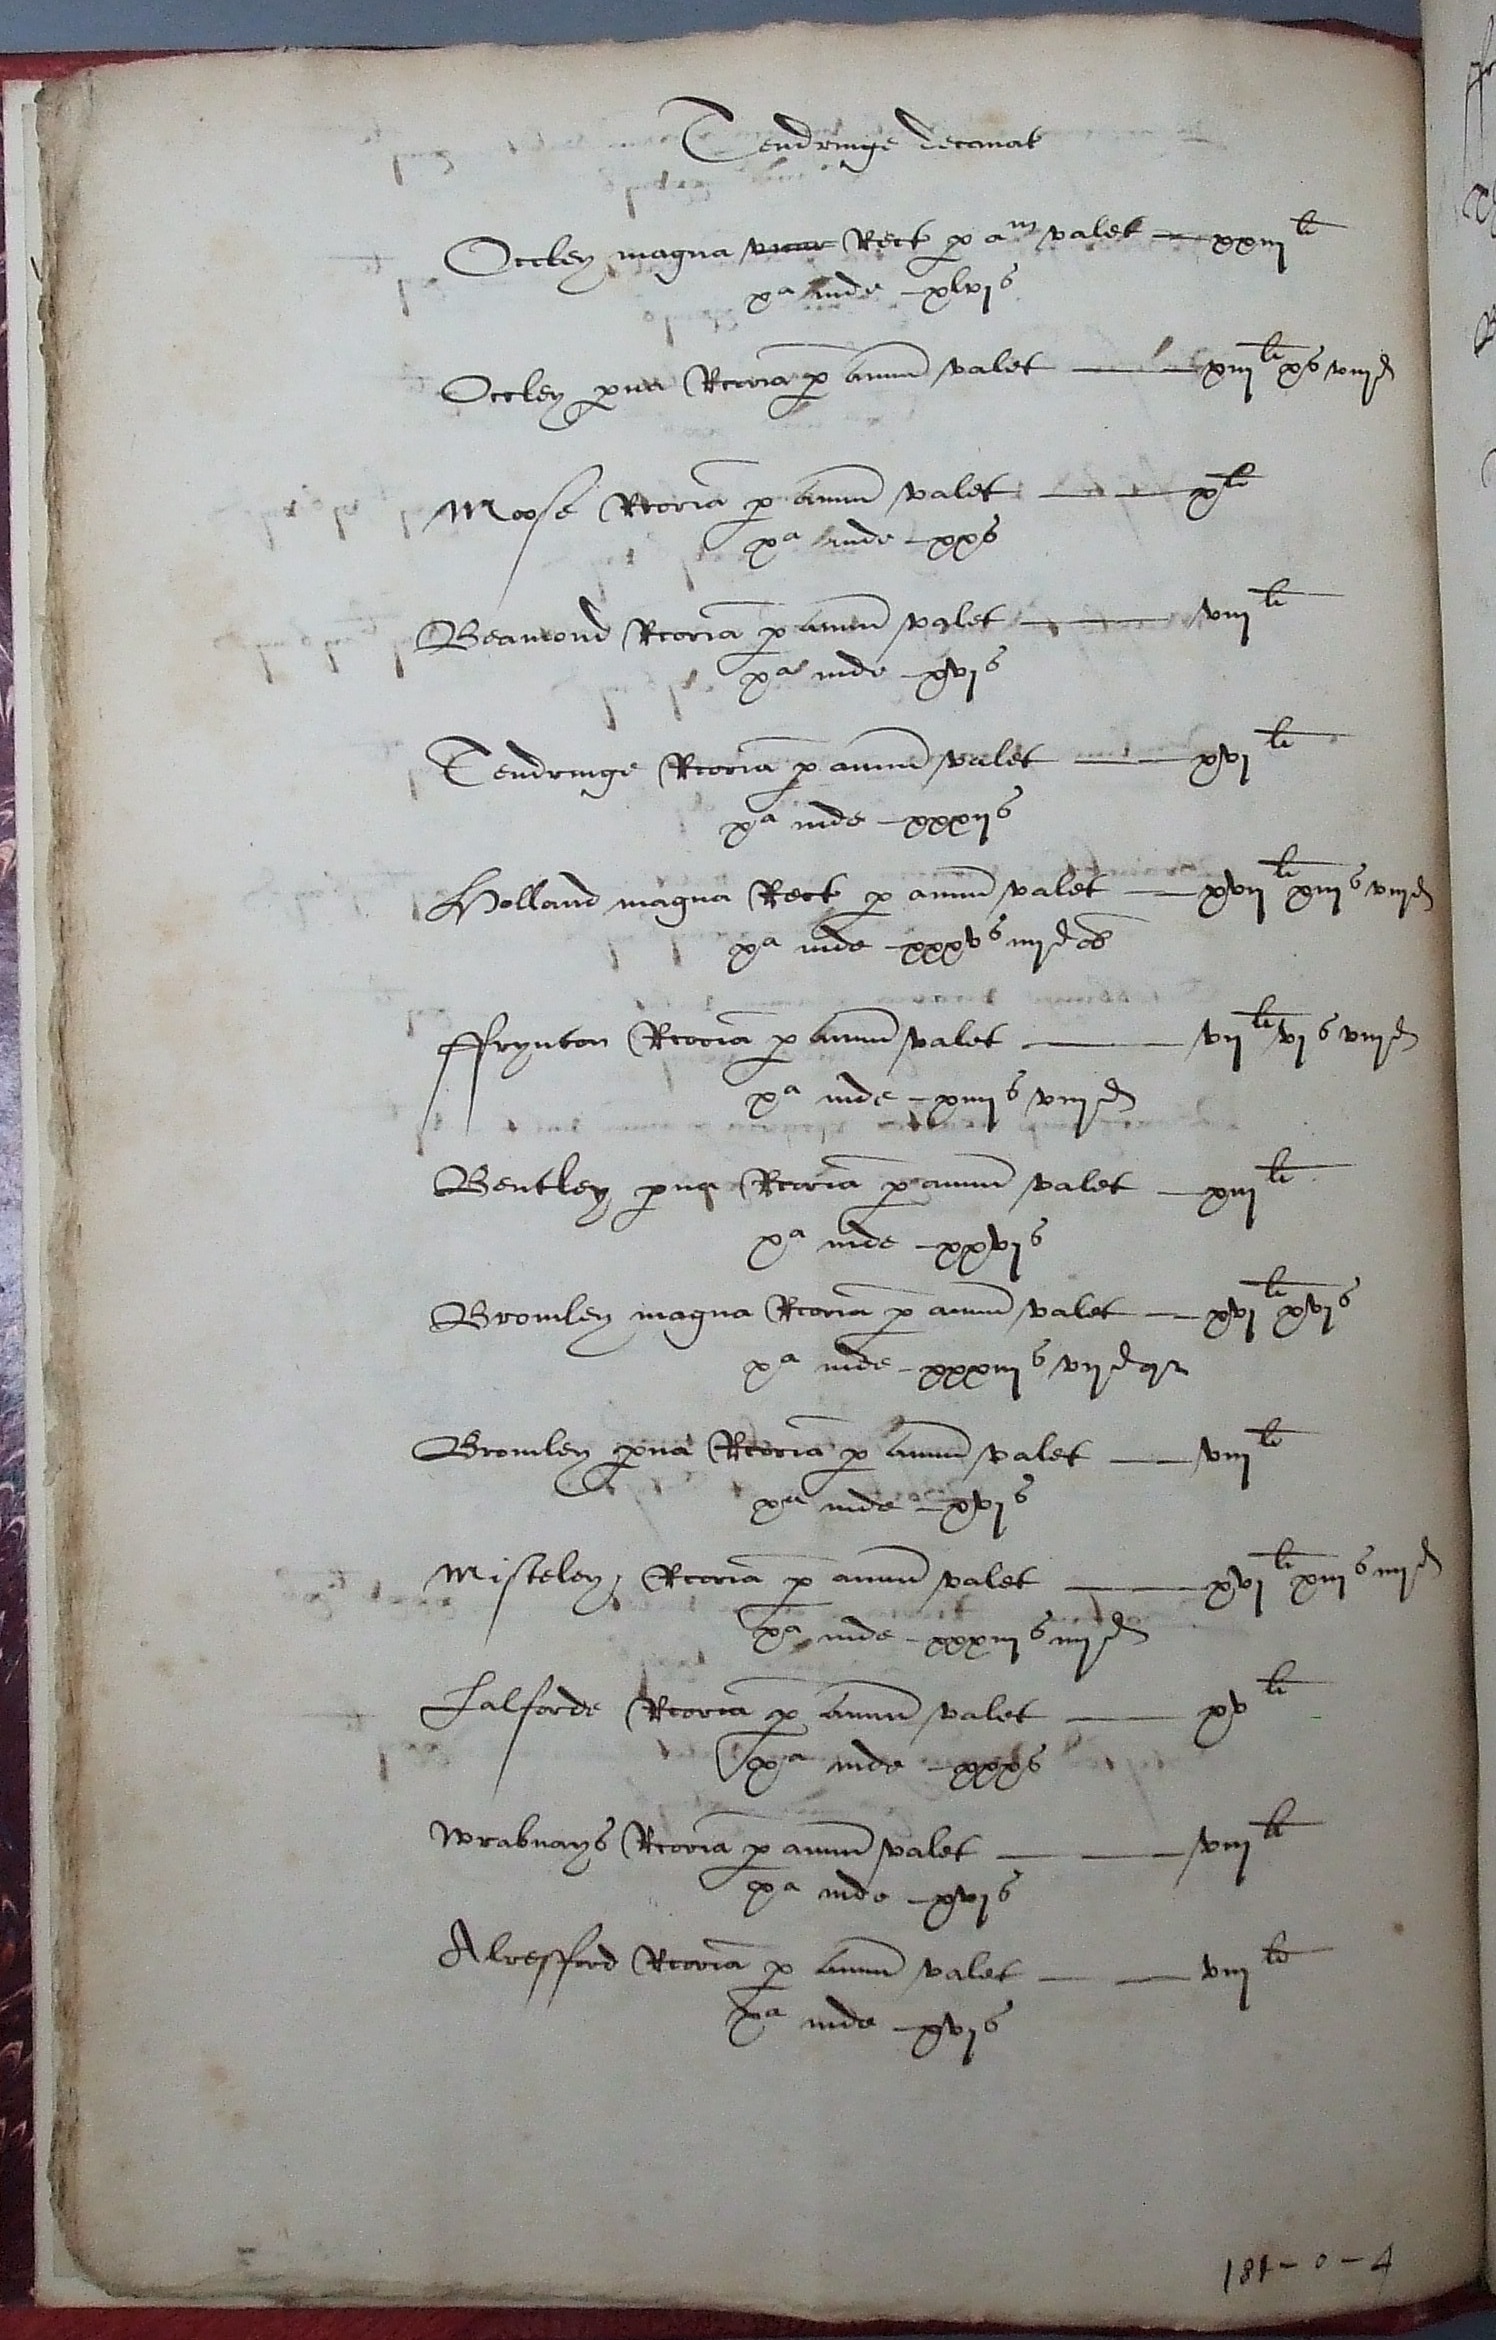 Tendringe decanat
Occley magna vicar Rect p am valet — xxiij li
xa inde — xlvj s
Occley pua Rcoria p annu valet — xiij li xs viij d
Moose Rcoria p annu valet — x li
xa inde — xx s
Beamond Rcoria p annu valet — viij li
xa inde — xvj s
Tendringe Rcoria p annu valet — xvj li
xa inde — xxxij s
Holland magna Rect p annu valet — xvij li xiij s viij d
xa inde — xxxv s iiij d ob
ffrynton Rcoria p annu valet — vij li vj s viij d
xa inde — xiiij s viij d
Bentley pua Rcoria p annu valet — xiij li
xa inde — xxvj s
Bromley magna Rcoria p annu valet — xvj li xvj s
xa inde — xxxiij s vij d qr
Bromley pua Rcoria p annu valet — viij li
xa inde — xvj s
Misteley Rcoria p annu valet — xvj li xiij s iiij d
xa inde — xxxiij s iiij d
Lalforde Rcoria p annu valet — xv li
xa inde — xxx s
Wrabnays Rcoria p annu valet — viij li
xa inde — xvj s
Alresfford Rcoria p annu valet — viij li
xa inde — xvj s
181 – 0 – 4